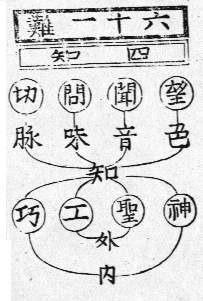 六十一難
四知
望聞問切
色音味脉
知
神聖工巧
外
内